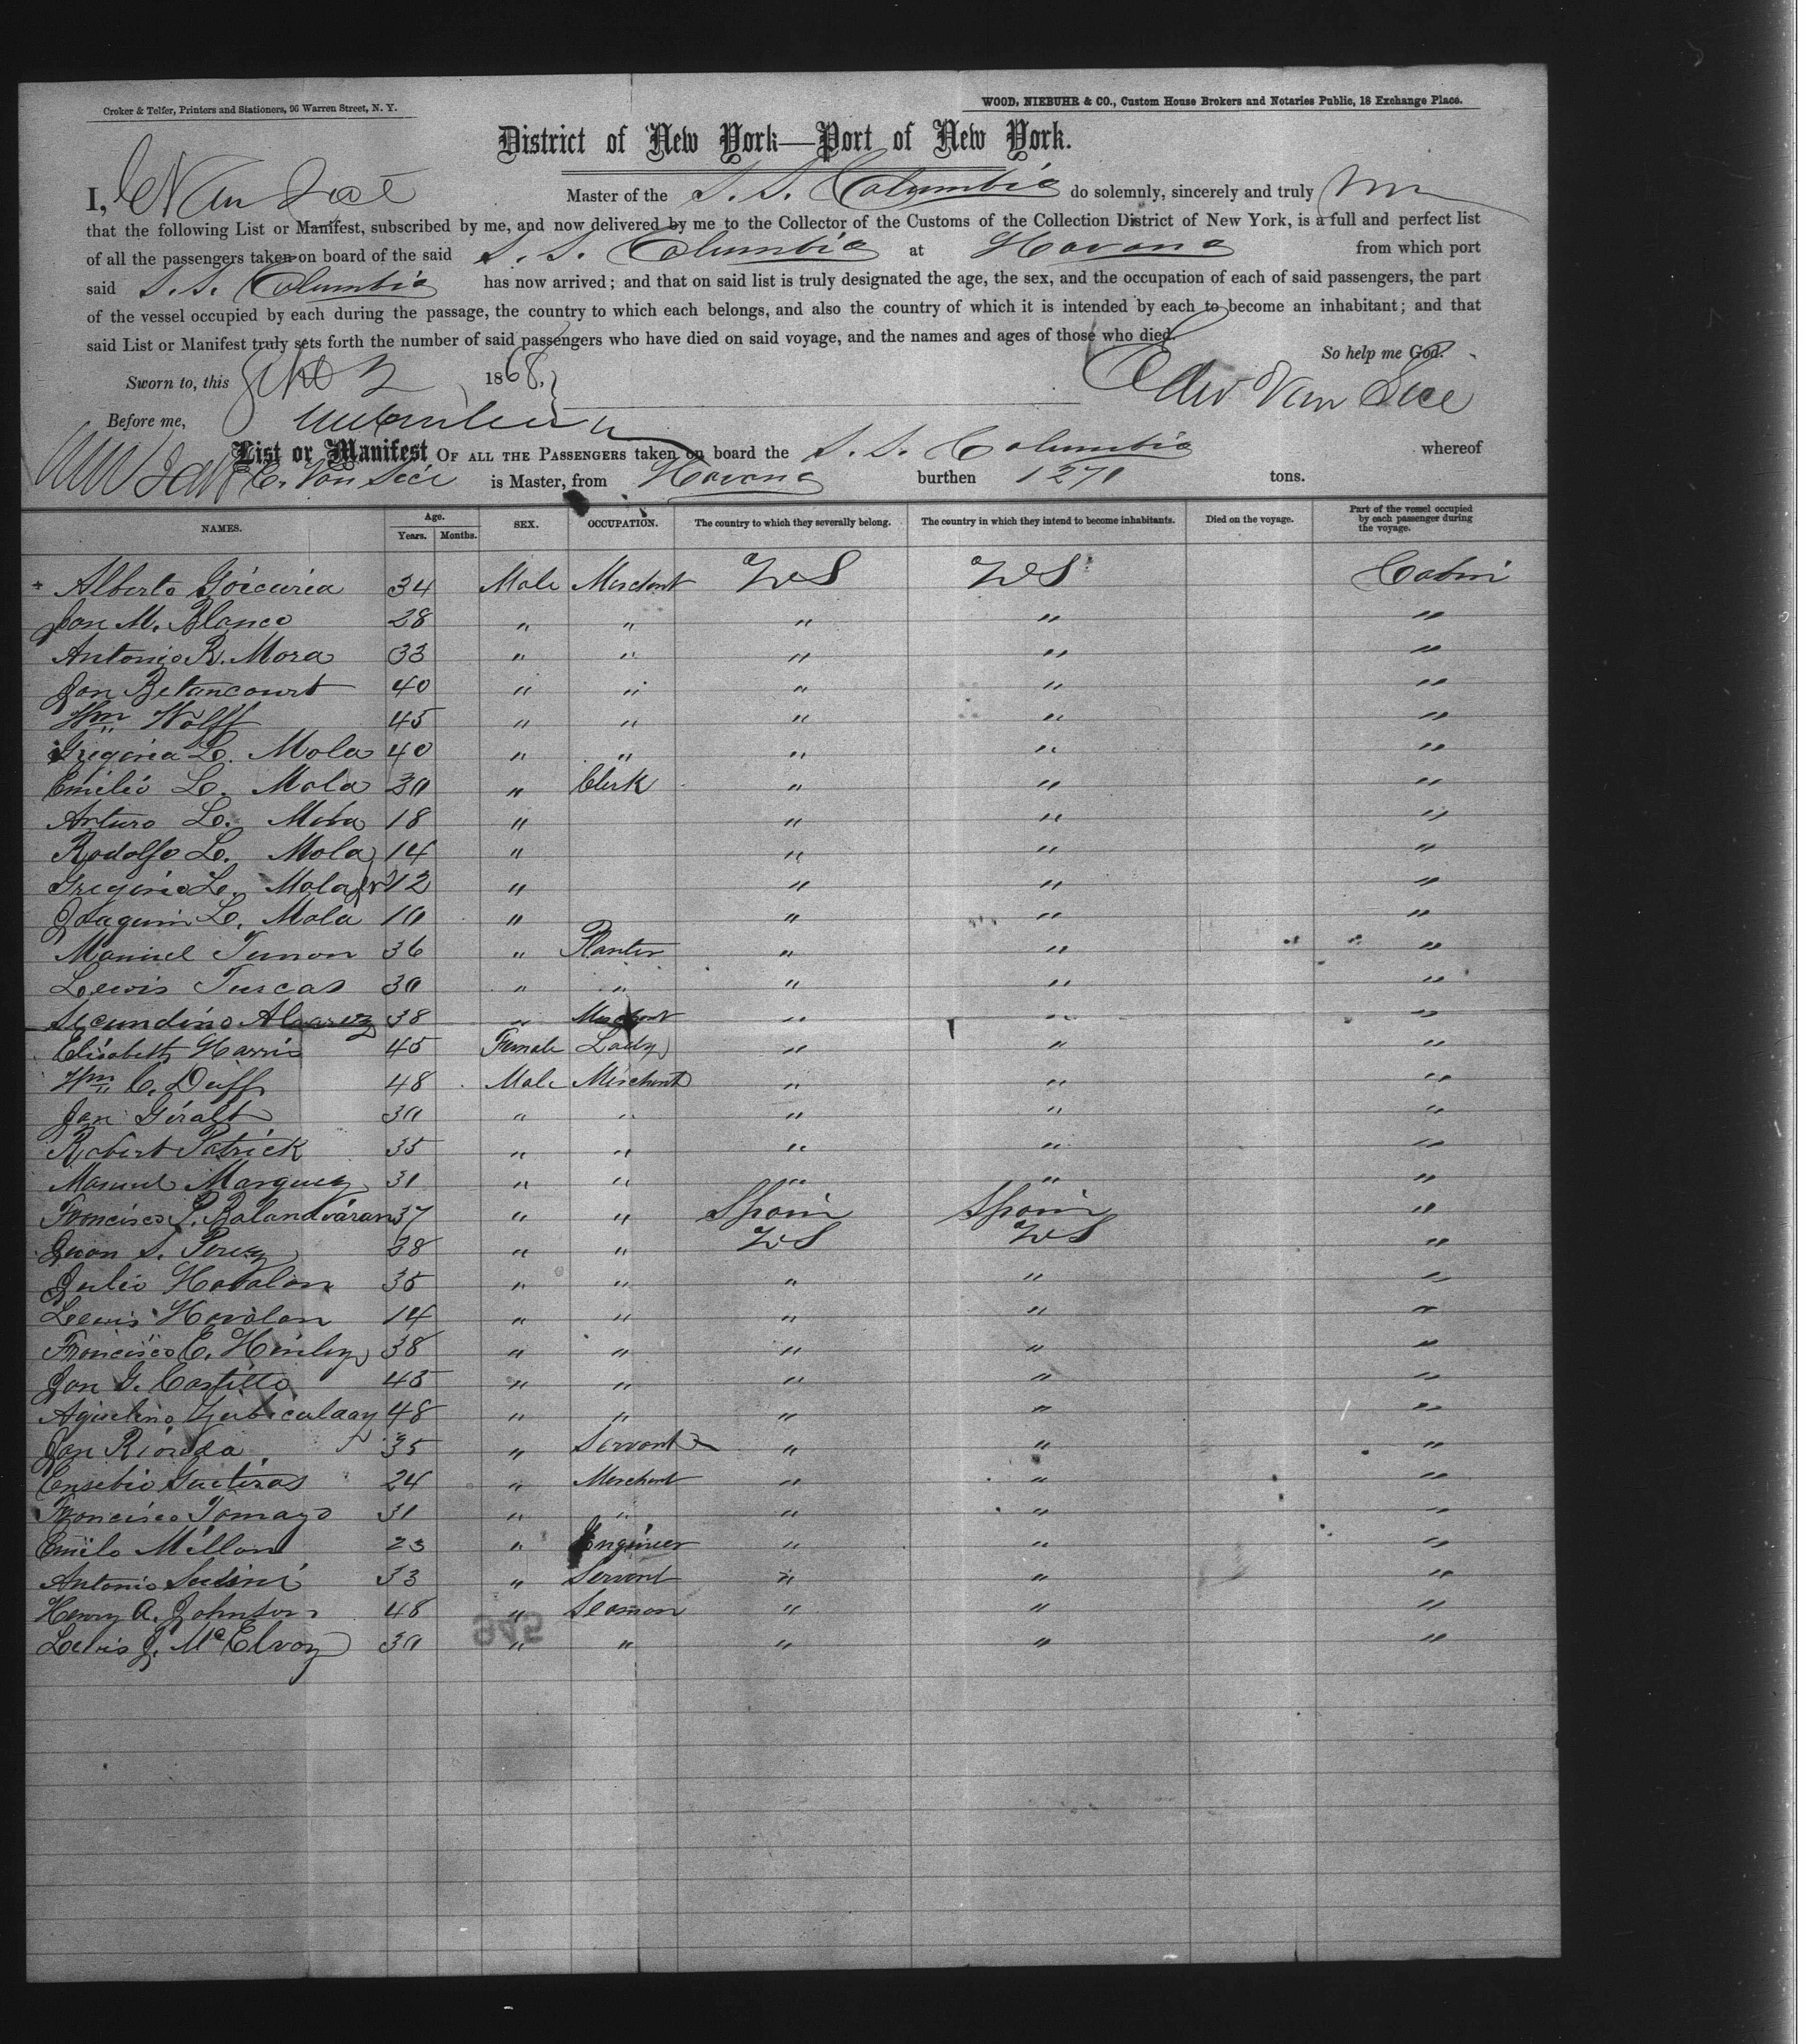 Croker & Telfer, Printers and Stationers, 96 Warren Street, N. Y.
WOOD, NIEBUHR & CO., Custom House Brokers and Notaries Public, 18 Exchange Place.
District of New York—Port of New York.
I, E Van Sice Master of the S. S. Columbia do solemnly, sincerely and truly
that the following List or Manifest, subscribed by me, and now delivered by me to the Collector of the Customs of the Collection District of New York, is a full and perfect list
of all the passengers taken on board of the said S. S. Columbia at Havana from which port
said S. S. Columbia has now arrived; and that on said list is truly designated the age, the sex, and the occupation of each of said passengers, the part
of the vessel occupied by each during the passage, the country to which each belongs, and also the country of which it is intended by each to become an inhabitant; and that
said List or Manifest truly sets forth the number of said passengers who have died on said voyage, and the names and ages of those who died.
So help me God.
Sworn to, this 1868,
Edw Van Sice
Before me,
List or Manifest OF ALL THE PASSENGERS taken on board the S. S. Columbia whereof
E. Van Sice is Master, from Havana burthen 1270 tons.
NAMES. Age. Years. Months. SEX. OCCUPATION. The country to which they severally belong. The country in which they intend to become inhabitants. Died on the voyage. Part of the vessel occupied by each passenger during the voyage.
+ Alberto Goicuria 34 Male Merchant US US Cabin
Jon M. Blanco 28 " " " " "
Antonio R. Mora 33 " " " " "
Jon Betancourt 40 " " " " "
Wm Wolff 45 " " " " "
Gregoria L. Mola 40 " " " " "
Emilio L. Mola 30 " Clerk " " "
Arturo L. Mola 18 " " " "
Rodolfo L. Mola 14 " " " "
Gregorio L. Mola Jr 12 " " " "
Joaquin L. Mola 10 " " " "
Manuel Tunon 36 " Planter " " "
Lewis Tuscas 30 " " " " "
Secundino Alvarez 38 " Merchant " " "
Elisabeth Harris 45 Female Lady " " "
Wm C. Duff 48 Male Merchant " " "
Jon Giralt 30 " " " " "
Robert Patrick 35 " " " " "
Manuel Marquez 31 " " " " "
Francisco P. Balandváran 37 " " Spain Spain "
Juan S. Perez 38 " " US US "
Julio Havalon 35 " " " " "
Lewis Havalon 14 " " " " "
Francisco E. Hinley 38 " " " " "
Jon G. Castillo 45 " " " " "
48 " " " " "
Jon Rionda 35 " Servant " " "
Eusebio Guiteras 24 " Merchant " " "
Francisco Tomayo 31 " " " " "
Emilo Millon 23 " Engineer " " "
Antonio Susini 33 " Servant " " "
Henry A. Johnson 48 " Seaman " " "
Lewis J. McElvoy 30 " " " " "